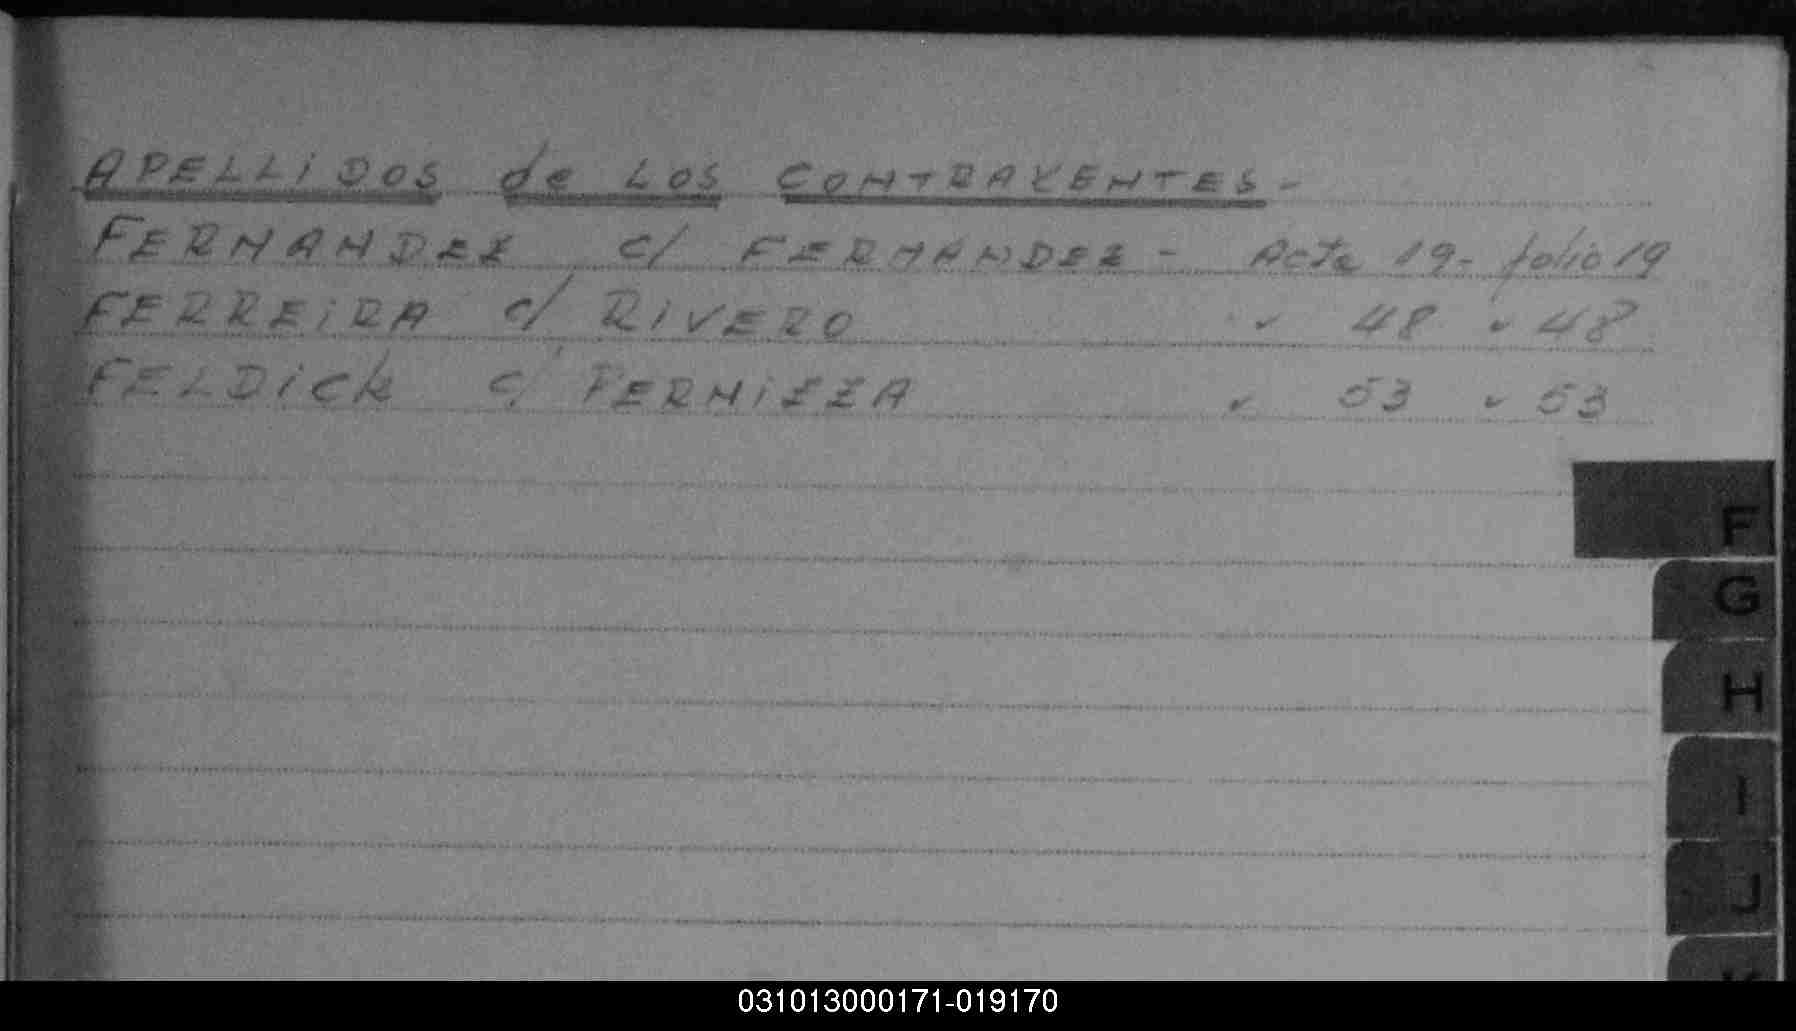 APELLIDOS de LOS CONTRAYENTES-
FERNANDEZ c/ FERNANDEZ - Acta 19- folio 19
FERREIRA c/ RIVERO " 48 " 48
FELDICK c/ PERNIZZA " 53 " 53
F
G
H
I
J
K
031013000171-019170